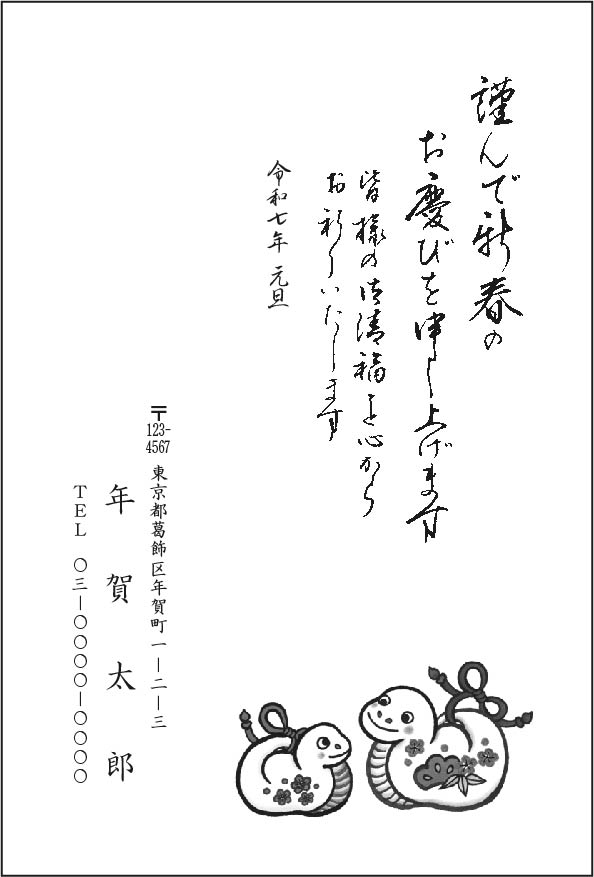 謹んで新春の
お慶びを申し上げます
皆様の御清福を心から
お祈りいたします
令和七年 元旦
〒123-4567 東京都葛飾区年賀町一ー二ー三
年賀太郎
TEL 〇三ー〇〇〇〇ー〇〇〇〇